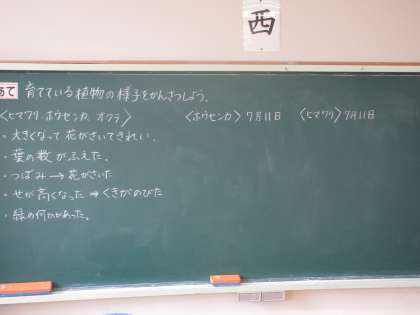 西
めあて 育てている植物の様子をかんさつしよう。
〈ヒマワリ ホウセンカ、オクラ〉 〈ホウセンカ〉7月11日 〈ヒマワリ〉7月11日
・大きくなって花がさいてきれい。
・葉の数がふえた。
・つぼみ→花がさいた
・せが高くなった⇒くきがのびた
・緑の何かがあった。